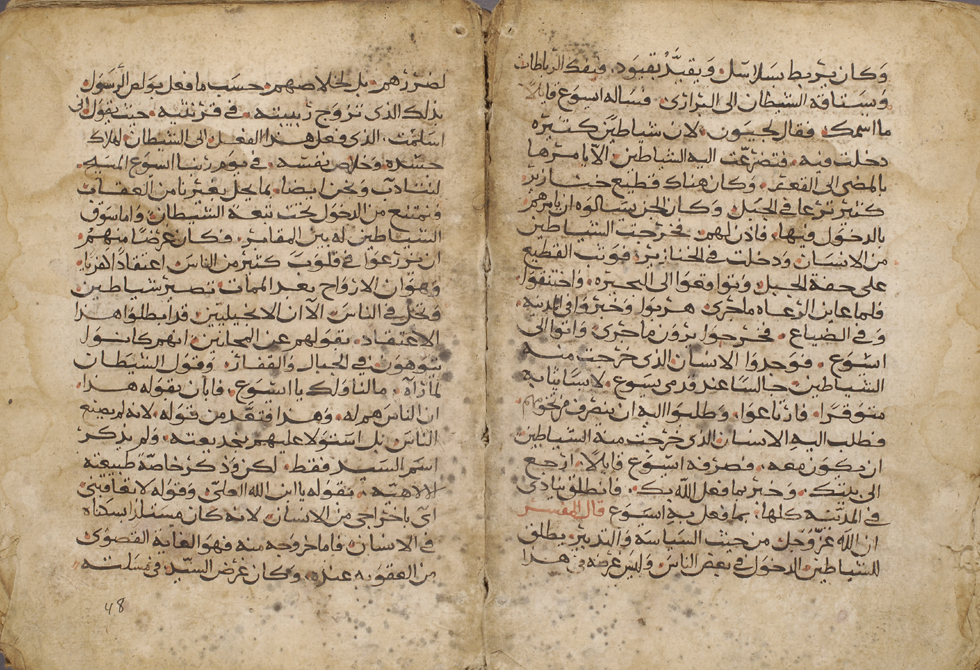 وكان يربط بسلاسل ويقيد بقيود. فيفك الرباطات
وستاقه الشيطان الى البراري. فساله اسوع قايلا
ما اسمك. فقال لجيون. لان شياطين كثيره
دخلت فيه. وتضرعت اليه الشياطين. الا يامرها
بالمضي الى القعر. وكان هناك قطيع خنازير
كثير ترعا في الجبل. وكان الجن سالوه ان يامرهم
بالدخول فيها. فاذن لهم. فخرجت الشياطين
من الانسان ودخلت في الخنازير. فوثب القطيع
على حفة الجبل. وتواقعوا الى البحيره. واختنقوا
فلما عاين الرعاه ماجرى. هربوا وخبروا في المدينه
وفي الضياع. فخرجوا يرون ماجرى. واتوا الى
اسوع. فوجدوا الانسان الذي خرجت منه
الشياطين. جالسا عند قدمي يسوع. لابسا ثيابه
متوقرا. فارتاعوا. وطلبوا اليه ان ينصرف من نحوهم
فطلب اليه الانسان الذي خرجت منه الشياطين
ان يكون معه. فصرفه اسوع قايلا. ارجع
الى بيتك. وخبر بما فعل الله بك. فانطلق ينادي
في المدينه كلها. بما فعل به اسوع قال المفسر
ان الله عز وجل من حيث السياسة والتدبير يطلق
للشياطين الدخول في بعض الناس وليس غرضه في هذا
لضررهم. بل لخلاصهم. حسب ما فعل بولص الرسول
بذلك الذي تزوج ربيبته. في قرنتيه. حيث يقول الي
اسلمت. الذي فعل هذا الفعل الى الشيطان لهلاك
جسده وخلاص نفسه. في يوم ربنا اسوع المسيح
لنتادب ونحن ايضا. بما يحل بغيرنا من العقاب
ونمتنع من الدخول تحت تبعة الشيطان. واما سوق
الشياطين له بين المقابر. فكان غرضا منهم
ان يزرعوا في قلوب كثير من الناس اعتقادا
وهو ان الارواح بعد الممات تصير شياطين
وتحل في الناس. الا ان الانجيليين قد ابطلوا هذا
الاعتقاد. بقولهم عن المجانين. انهم كانوا
يتوهون في الجبال والقفار. وقول الشيطان
لما رآه. مالنا ولك يا اسوع. فابان بقوله هذا.
ان الناس هم له. وهذا فتقد من قوله. لانه لم يصنع
الناس بل استولا عليهم بخديعته. ولم يذكر
اسم السيد فقط. لكن وذكر خاصة طبيعته
الالاهية. بقوله يا ابن الله العلي. وقوله لا تعاقبني
اي باخراجي من الانسان لانه كان مستلذا سكناه
في الانسان. فاما خروجه منه فهو الغاية القصوى
من العقوبه عنده. وكان غرض السيد في مسلته
48